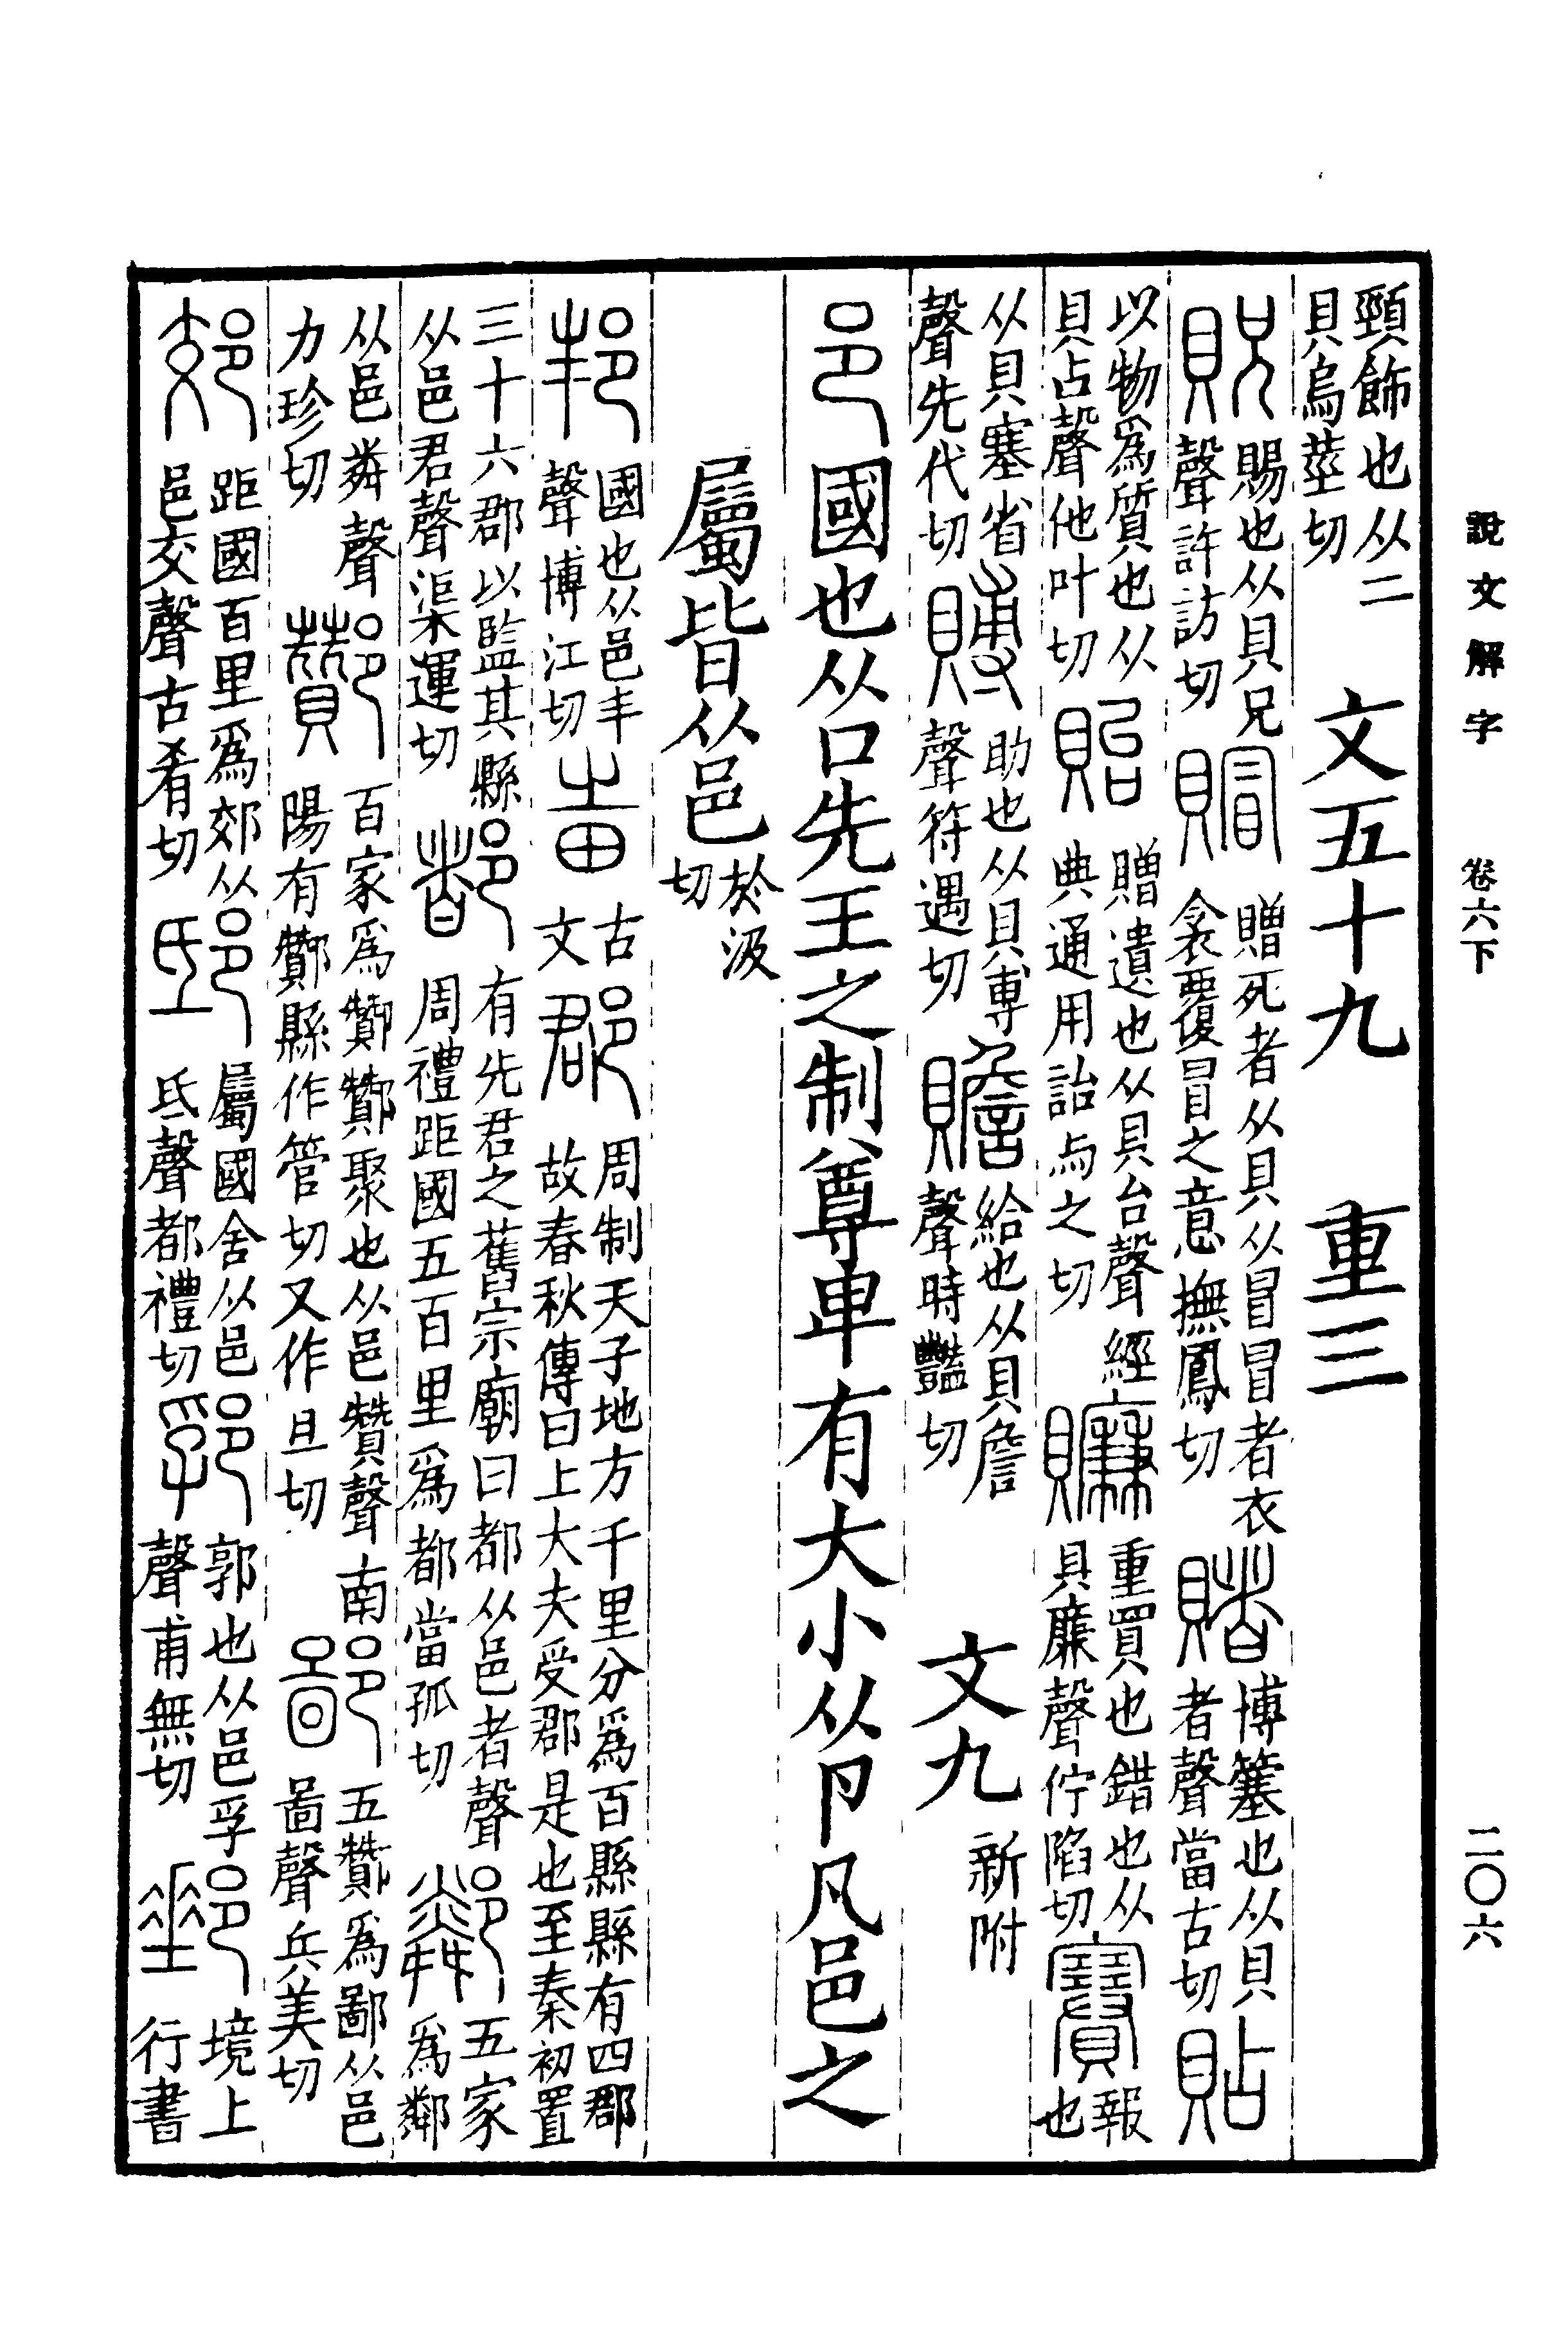 說文解字 卷六下 二〇六
頸飾也从二
貝烏莖切
文五十九 重三
貺
賜也从貝兄
聲許訪切
賵
贈死者从貝从冒冒者衣
衾覆冒之意撫鳳切
賭
博簺也从貝
者聲當古切
貼
以物爲質也从
貝占聲他叶切
貽
贈遺也从貝台聲經
典通用詒与之切
賺
重買也錯也从
貝廉聲佇陷切
賽
報
也
从貝塞省
聲先代切
賻
助也从貝尃
聲符遇切
贍
給也从貝詹
聲時豔切
文九
新附
邑國也从囗先王之制尊卑有大小从卪凡邑之
屬皆从邑
於汲
切
邦
國也从邑丰
聲博江切
𤰫
古
文
郡
周制天子地方千里分爲百縣縣有四郡
故春秋傳曰上大夫受郡是也至秦初置
三十六郡以監其縣
从邑君聲渠運切
都
有先君之舊宗廟曰都从邑者聲
周禮距國五百里爲都當孤切
鄰
五家
爲鄰
从邑粦聲
力珍切
酇
百家爲酇酇聚也从邑贊聲南
陽有酇縣作管切又作旦切
鄙
五酇爲鄙从邑
啚聲兵美切
郊
距國百里爲郊从
邑交聲古肴切
邸
屬國舍从邑
氐聲都禮切
郛
郭也从邑孚
聲甫無切
郵
境上
行書